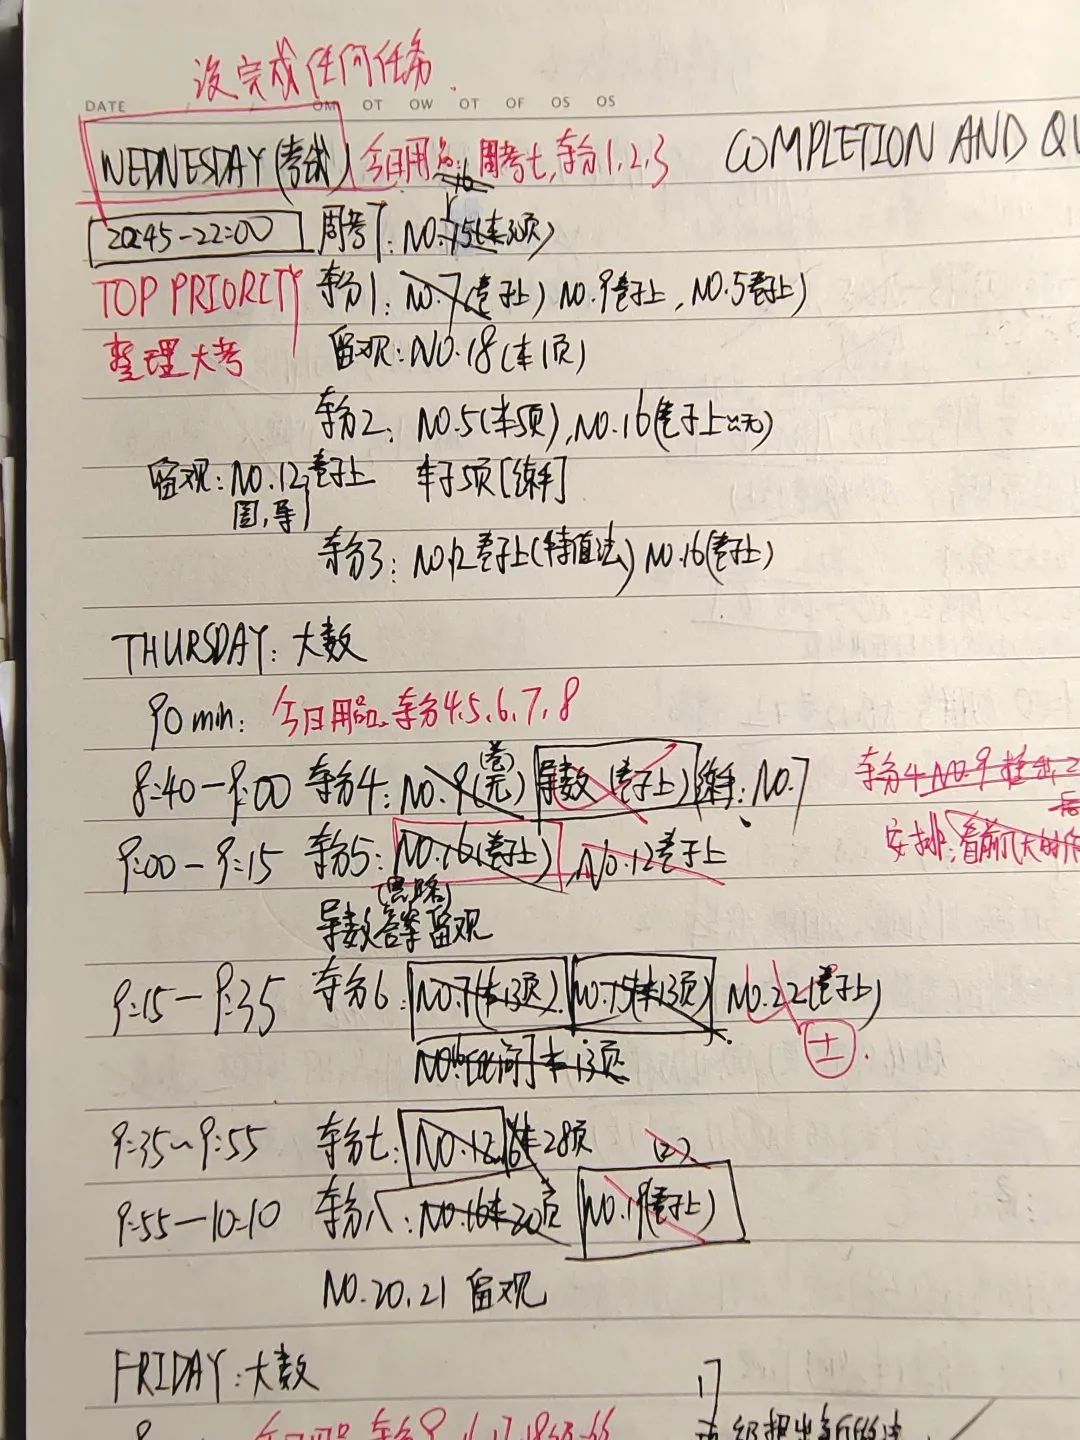 没完成任何任务.
DATE OM OT OW OT OF OS OS
WEDNESDAY (考试) 今日用品: 周考七, 夯分1,2,3 COMPLETION AND QU
20:45-22:00 周考7: NO.15(本30页)
16
TOP PRIORITY 夯分1: NO.7(卷子上) NO.9卷子上, NO.5卷子上)
整理大考 留观: NO.18(本1页)
夯分2: NO.5(本5页), NO.16(卷子上)
留观: NO.12卷子上 本子5页[练手]
图,导
夯分3: NO.12卷子上(特值法) NO.16(卷子上)
THURSDAY: 大数
90 min: 今日用品 夯分4.5、6、7、8
8:40-9:00 夯分4: NO.9(无) 导数(卷子上) 练手: NO.7 夯分4 NO.9
9:00-9:15 夯分5: NO.16(卷子上), NO.12卷子上 安排: 看前几天的
(思路)
导数答案留观
9:15-9:35 夯分6: NO.7(本13页) NO.15(本13页) NO.22(卷子上)
NO.16 本13页
9:35~9:55 夯分七: NO.12, 16本28页 (2)
9:55-10:10 夯分八: NO.16本20页 NO.19(卷子上)
NO.20.21 留观
FRIDAY: 大数
17